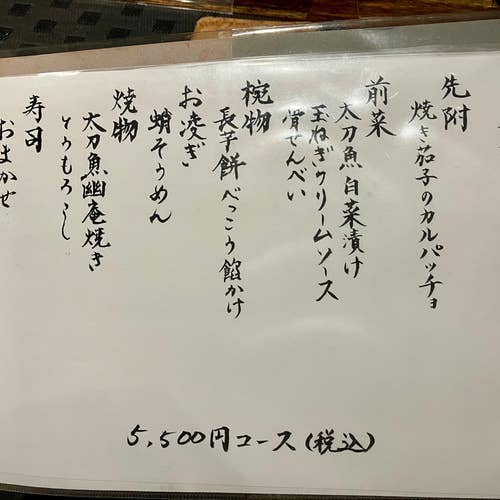 先附
焼き茄子のカルパッチョ
前菜
太刀魚白菜漬け
玉ねぎクリームソース
骨せんべい
椀物
長芋餅べっこう餡かけ
お凌ぎ
蛸そうめん
焼物
太刀魚幽庵焼き
とうもろこし
寿司
おまかせ
5,500円コース(税込)